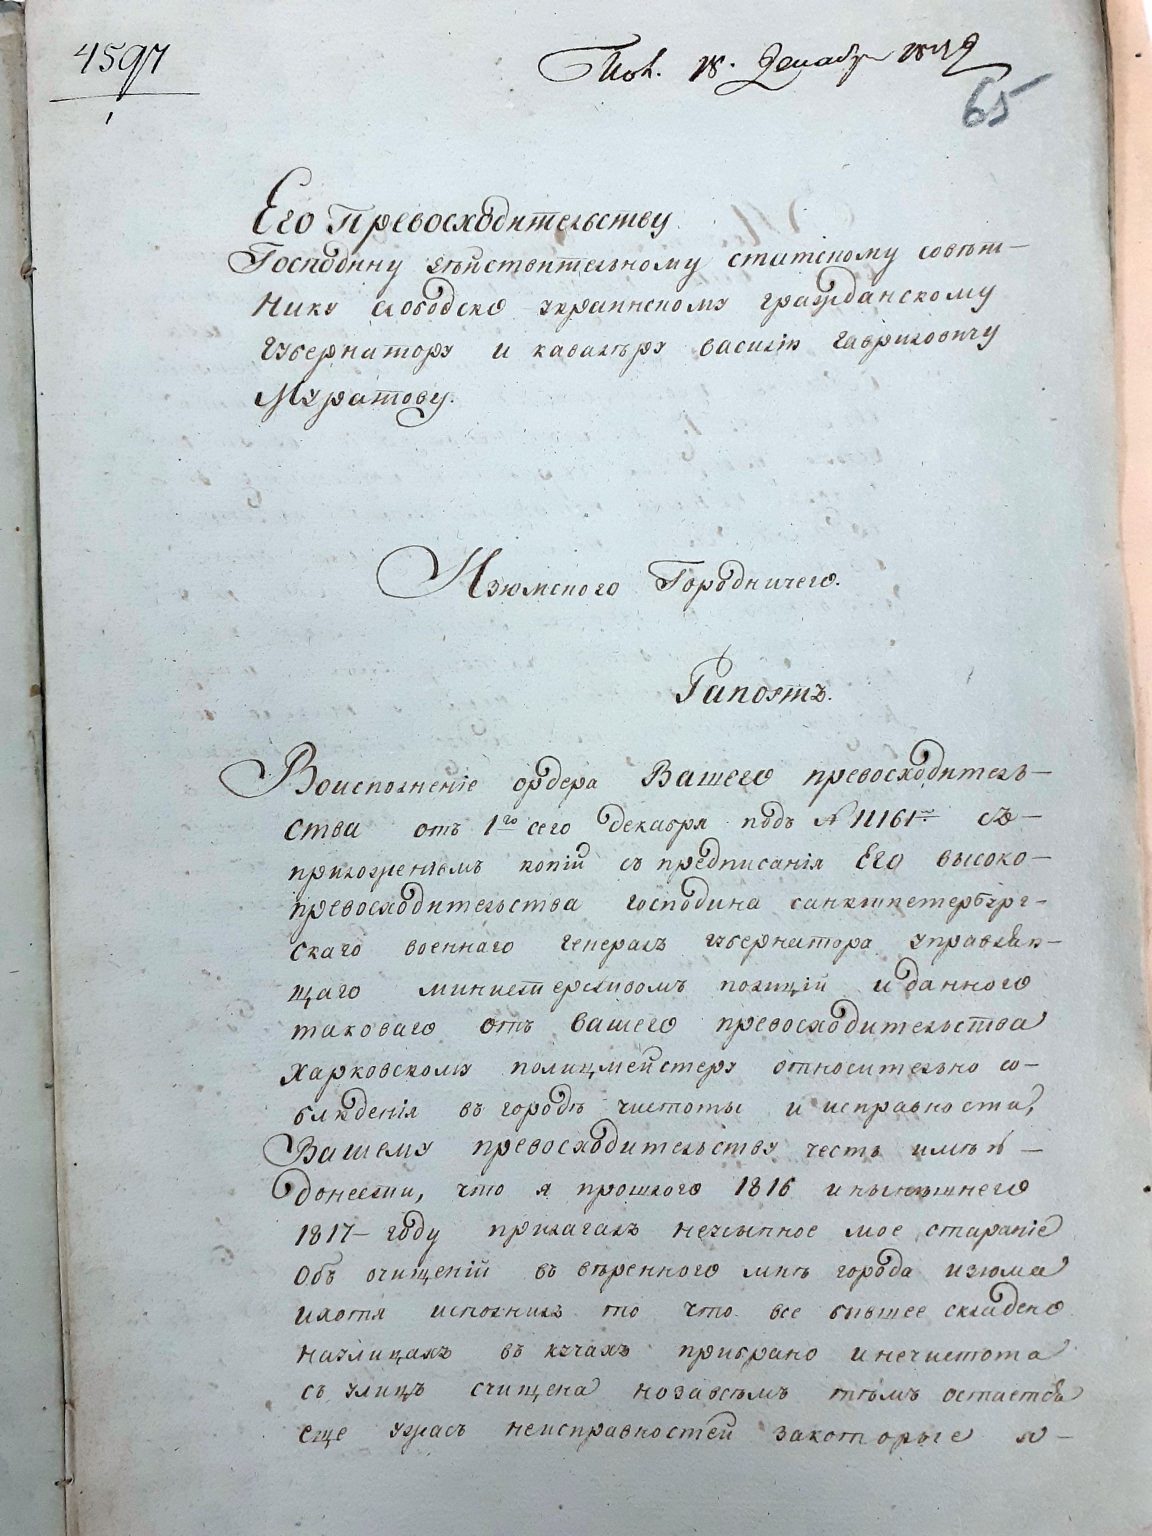 4597
1
Пол. 18. Декабр 1817
65
Его Превосходительству
Господину дѣйствительному статскому совѣт-
нику слободско украинскому гражданскому
губернатору и кавалеру василію гавриловичу
Муратову.
Изюмского Городничего.
Рапортъ.
Воисполненіе ордера Вашего превосходитель-
ства отъ 1го сего декабря подъ N 11161м съ-
приложеніемъ копій съ предписанія Его высоко-
превосходительства господина санктпетербург-
скаго военнаго генералъ губернатора управляю-
щаго министерствомъ полицій и данного
таковаго отъ вашего превосходительства
харковскому полицмейстеру относительно со-
блюденія въ городѣ чистоты и исправности,
Вашему превосходительству честь имѣю-
донести, что я прошлого 1816 и нынѣшнего
1817- году прилагалъ неусыпное мое стараніе
объ очищеній въ вѣренного мнѣ города изюма
ихотя исполнилъ то что все бывшее складено
наулицахъ въ кучахъ прибрано инечистота
съ улицъ счищена нозавсѣмъ тѣмъ остается
еще ужасъ неисправностей закоторые я-